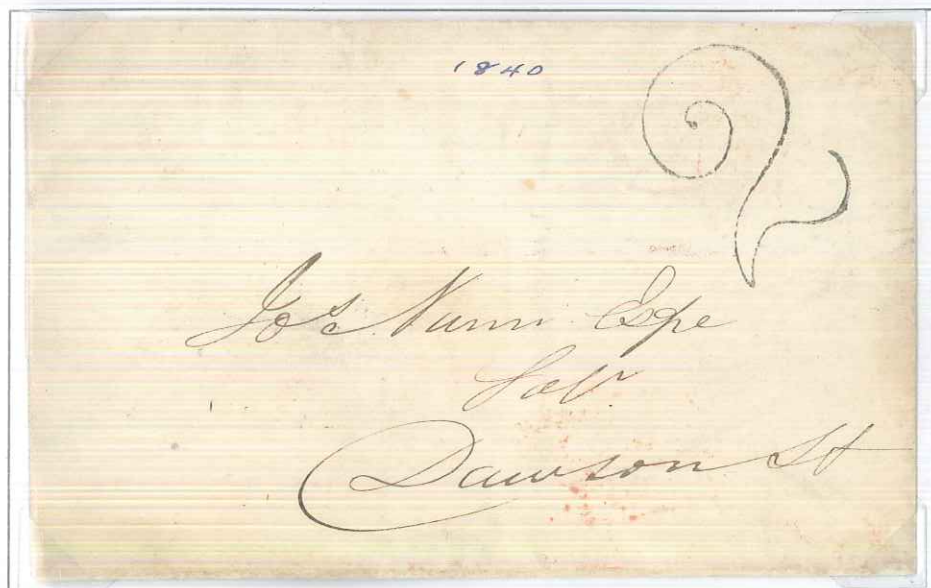 1840
2
Jos Nunn Esqe
Solr
Dawson St